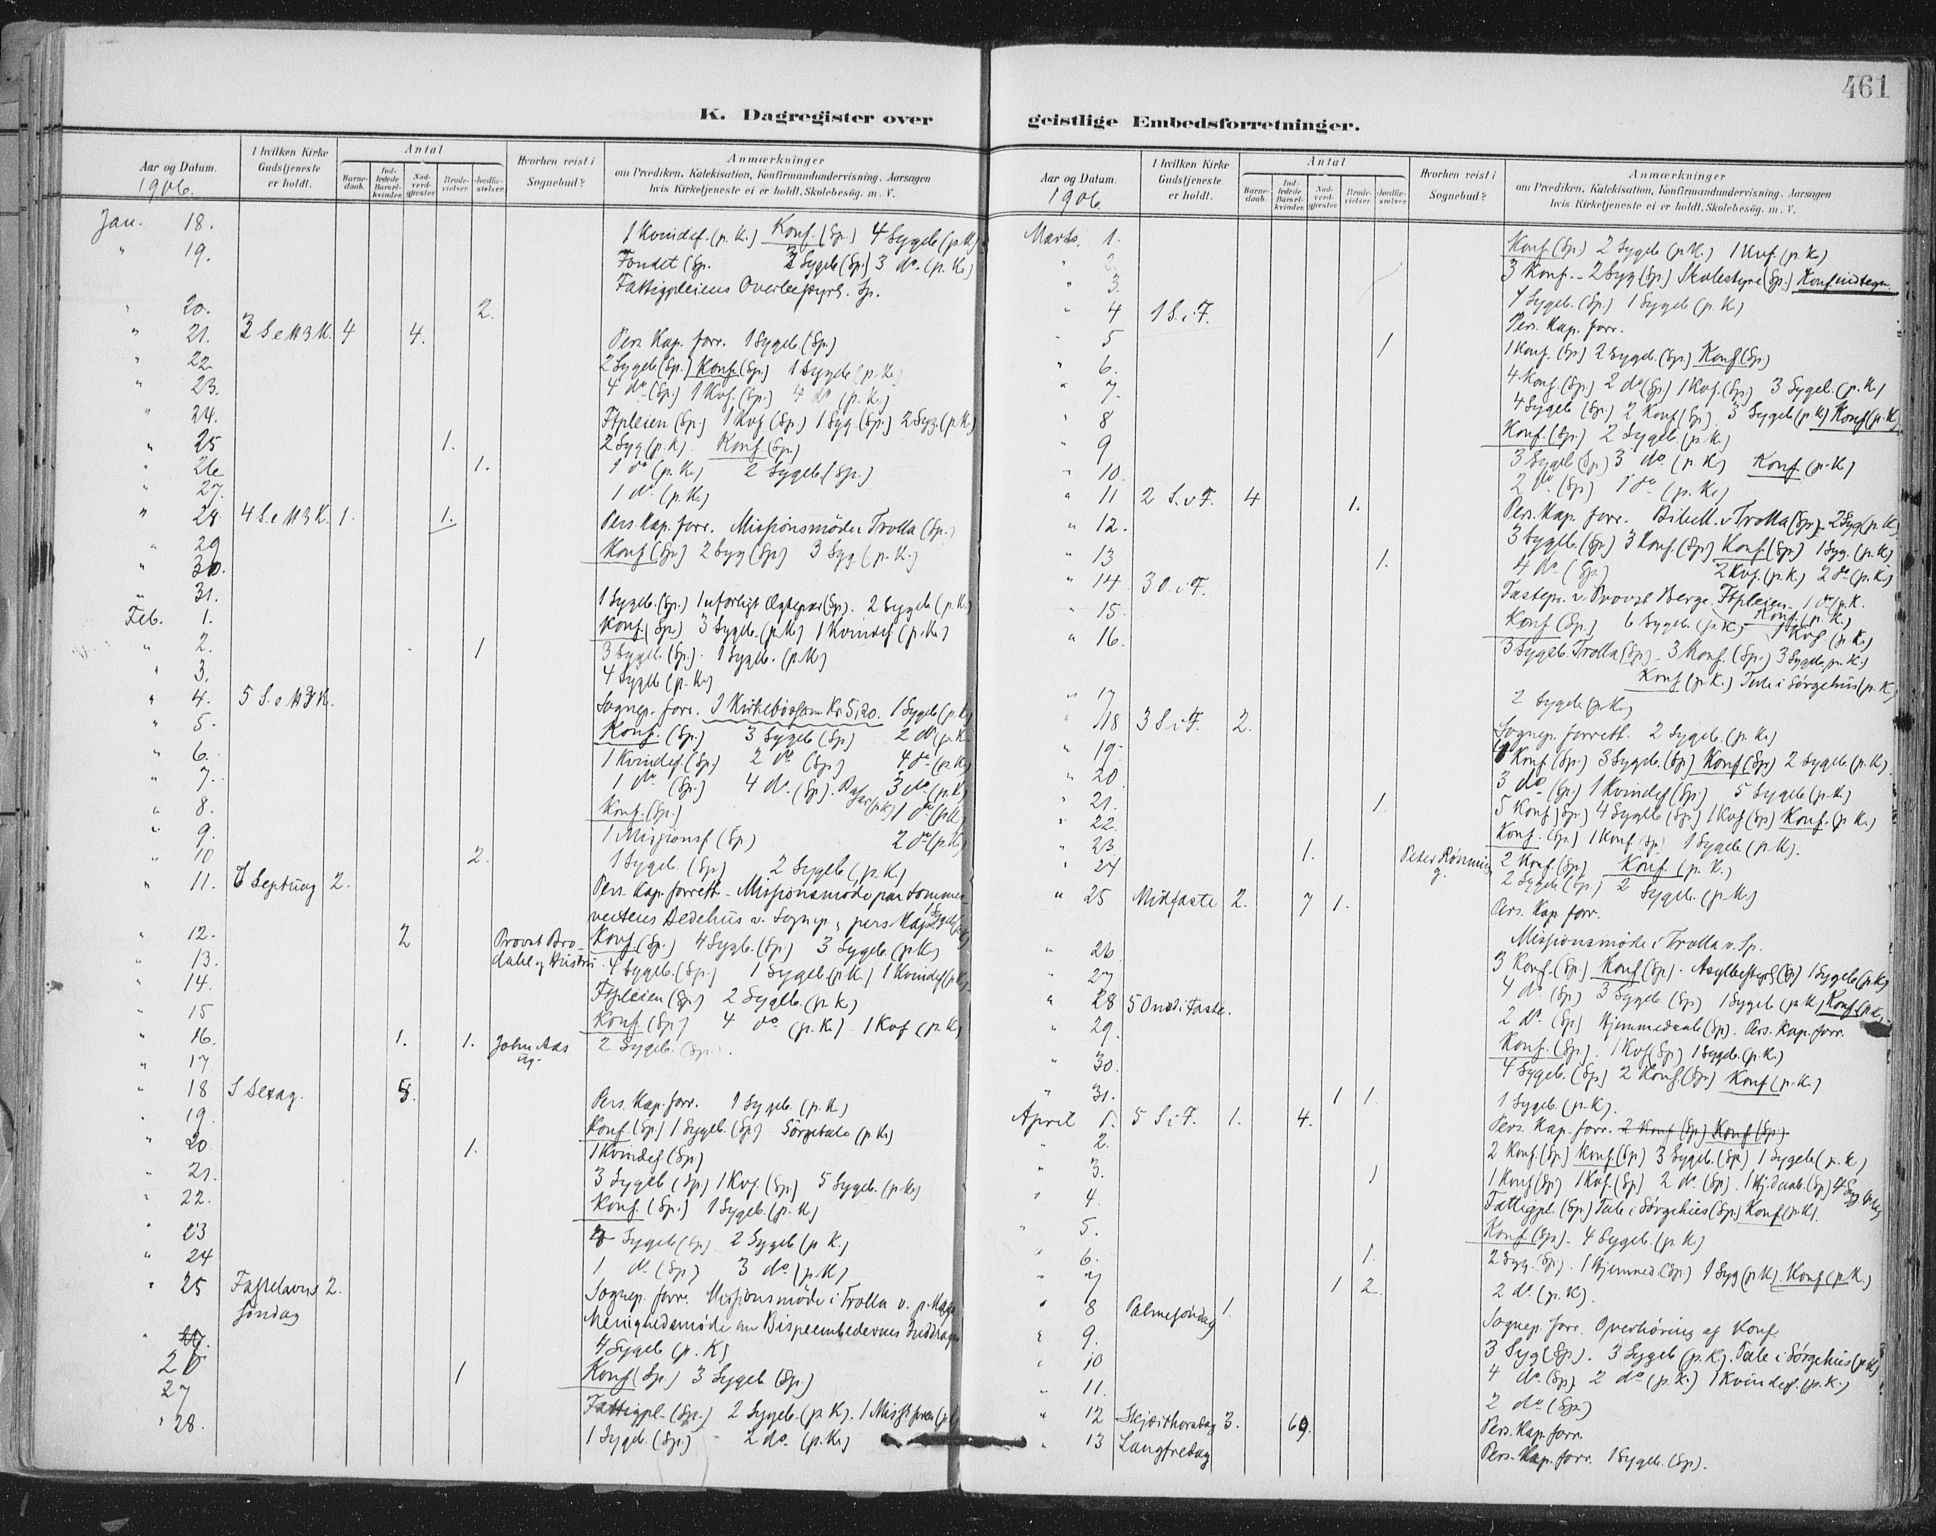 461
K. Dagregister over geistlige Embedsforretninger.
Aar og Datum.
1906.
I hvilken Kirke Gudstjeneste er holdt.
Antal
Barne-daab.
Ind-ledede Barsel-kvinder.
Nad-verd-gjæster.
Brude-vielser.
Jordfæ-stelser.
Hvorhen reist i Sognebud?
Anmærkninger
om Prædiken, Katekisation, Konfirmandundervisning, Aarsagen
hvis Kirketjeneste ei er holdt, Skolebesøg. m. V.
Jan. 18. 1 Kvindef. (p. K.) Konf. (Sp.) 4 Sygeb (p. K)
" 19. Fondet (Sp. 2 Sygeb (Sp.) 3 do. (p. K.)
Fattigpleiens Overbestyr. Sp.
" 20. 2.
" 21. 3 S e H 3 K. 4 4. Pers. Kap. forr. 1 Sygeb (Sp.)
" 22 2 Sygeb (Sp.) Konf. (Sp.) 1 Sygeb (p. K.)
" 23. 4 do (Sp.) 1 Kvf. (Sp.) 4 do (p. K.)
" 24. Ftpleien (Sp.) 1 Kvf (Sp.) 1 Syg (Sp.) 2 Syg. (p. K.)
" 25 1. 2 Syg (p. K.) Konf. (Sp.)
" 26 1. 1 do (p. K.) 2 Sygeb (Sp.)
" 27. 1 do (p. K.)
" 28. 4 S e H 3 K. 1. 1. Pers. Kap. forr. Missionsmöde i Trolla (Sp.)
" 29 Konf (Sp.) 2 Syg (Sp.) 3 Syg. (p. K.)
" 30.
" 31. 1 Sygeb. (Sp.) 1 uforligt Ægtepar (Sp). 2 Sygeb (p. K.)
Feb. 1. Konf. (Sp.) 3 Sygeb. (p. K.) 1 Kvindef (p. K.)
" 2. 1 3 Sygeb (Sp.). 1 Sygeb. (p. K.)
" 3. 4 Sygeb (p. K.)
" 4. 5 S. e H 3 K. Sognep. forr. 1 Sygeb (p. K.)
" 5. Konf. (Sp.) 3 Sygeb (Sp) 2 do (p. K.
" 6. 1 Kvindef. (Sp.) 2 do (Sp.) 4 do (p. K.)
" 7. 1 do (Sp.) 4 do. (Sp). 3 do (p. K)
" 8. Konf. (Sp.) 1 do (p. K)
" 9. 1 Missionsf (Sp) 2 do (p. K.)
" 10 2. 1 Sygeb. (Sp) 2 Sygeb (p. K.)
" 11. Septuag 2. Pers. Kap. forrett. Missionsmöde paa Sommer-
veiteies Bedehus v. Sognep. & pers. Kap.
" 12. 2 Provst Bro- Konf (Sp.) 4 Sygb. (Sp.) 3 Sygeb. (p. K.)
" 13. dahl og Hustru. 4 Sygeb. (Sp.) 1 Sygeb (p. K.) 1 Kvindef (p. K).
" 14. Ftpleien (Sp.) 2 Sygeb. (p. K.)
" 15 Konf (Sp.) 4 do (p. K.) 1 Kvf (p. K)
" 16. 1. 1. John Aas 2 Sygeb. (Sp.).
" 17 sg.
" 18 S Sexag. 5. Pers. Kap. forr. 1 Sygeb. (p. K.)
" 19. Konf (Sp.) 1 Sygeb. (Sp) Sörgetale (p. K)
" 20 1. 1 Kvindef (Sp)
" 21. 3 Sygeb (Sp.) 1 Kvf. (Sp) 5 Sygeb. (p. K.)
" 22. Konf. (Sp.) 1 Sygeb. (p. K)
" 23 Sygeb (Sp) 2 Sygeb (p. K.)
" 24 1 do (Sp) 3 do (p. K)
" 25 Fastelavns 2. Sognep. forr. Missionsmöde i Trolla v. p. Kap.
söndag Menighedsmöde om Bispeembedernes Inddragn
4 Sygeb (p. K)
26 1 Konf (Sp.) 3 Sygeb (Sp.)
27 Fattigpl. (Sp.) 2 Sygeb. (p. K). 1 Miss. foren (p. K)
" 28. 1 Sygeb. (Sp.) 2 do. (p. K.)
Aar og Datum.
1906
I hvilken Kirke Gudstjeneste er holdt.
Antal
Barne-daab.
Ind-ledede Barsel-kvinder.
Nad-verd-gjæster.
Brude-vielser.
Jordfæ-stelser.
Hvorhen reist i Sognebud?
Anmærkninger
om Prædiken, Katekisation, Konfirmandundervisning, Aarsagen
hvis Kirketjeneste ei er holdt, Skolebesøg. m. V.
Marts. 1. Konf. (Sp) 2 Sygeb (p. K.) 1 Kvf. (p. K.)
" 2. 3 Konf. - 2 Syg (Sp.) Skolestyre (Sp.) Konf indtegn.
" 3. 4 Sygeb. (Sp.) 1 Sygeb (p. K.)
" 4 1 S. i F. Pers. Kap. forr.
" 5 1 1 Konf. (Sp.) 2 Sygeb. (Sp) Konf (Sp)
" 6. 4 Konf. (Sp.) 2 do (Sp.) 1 Kvf. (Sp.) 3 Sygeb. (p. K.)
" 7. 4 Sygeb (Sp.) 2 Konf (Sp). 3 Sygeb (p. K) Konf (p. K)
" 8 Konf. (Sp.) 2 Sygeb. (p. K.)
" 9 3 Sygeb (Sp) 3 do. (p. K) Konf. (p. K)
" 10. 2 do. (Sp) 1 do (p. K.)
" 11 2 S. i F. 4 1. Pers. Kap. forr. Bibell. i Trolla (Sp.) 2 Syg (p. K)
" 12. 3 Sygeb. (Sp) 3 Konf. (Sp) Konf. (Sp) 1 Syg. (p. K)
" 13 1. 4 do (Sp.) 2 Kvf. (p. K.) 2 do (p. K.)
" 14 3 O. i F. Fastepr. v. Provst Berge. Ftpleien. 1 do p. K.
" 15. Konf (Sp.) 6 Sygeb (p. K) Konf. (p. K) 1 Kvf (p. K)
" 16. 3 Sygeb. Trolla (Sp). 3 Konf. (Sp.) 3 Sygeb. p. K.)
Konf (p. K.) Tale i Sörgehus (p. K)
" 17 2 Sygeb (p. K.)
" 18 3 S i F. 2. Sognep. forrett. 2 Sygeb. (p. K.)
" 19. Konf. (Sp.) 3 Sygeb. (Sp) Konf (Sp) 2 Sygeb (p. K).
" 20 3 do. (Sp) 1 Kvindef (Sp.) 5 Sygeb (p. K)
" 21. 1. 5 Konf (Sp) 4 Sygeb (Sp) 1 Kvf (Sp) Konf. (p. K.)
" 22. Konf. (Sp) 1 Konf (Sp) 1 Sygeb (p. K).
" 23 1. Peter Rönning 2 Konf. (Sp) Konf. (p. K.)
" 24 2 Sygeb (Sp.) 2 Sygeb. (p. K.)
" 25 Midfaste 2. 7 1. Pers. Kap forr.
Missionsmöde i Trolla v. Sp.
" 26 3 Konf. (Sp.) Konf (Sp). Asylbestyr (Sp) 1 Sygeb (p. K)
" 27 4 do (Sp) 3 Sygeb (Sp) 1 Sygeb (p. K) Konf (p. K)
" 28 5 Onsd i Faste. 2 do. (Sp) Hjemmedaab (Sp). Pers. Kap. forr.
" 29. Konf. (Sp.). 1 Kvf (Sp) 1 Sygeb. (p. K.)
" 30. 4 Sygeb. (Sp) 2 Konf (Sp) Konf (p. K.)
" 31. 1 1. 1 Sygeb. (p. K).
April 1. 5 S i F. 1. 4. Pers. Kap. forr. 2 Konf (Sp) Konf (Sp)
" 2. 2 Konf. (Sp) Konf. (Sp) 3 Sygeb. (Sp) 1 Sygeb (p. K)
" 3. 1 1 Konf (Sp) 1 Kvf. (Sp) 2 do. (Sp). 1 Hj. daab. (Sp) 4 Syg (p. K)
" 4. Fattigpl. (Sp.) Tale i Sörgehus (Sp.) Konf (p. K).
" 5. Konf (Sp). 4 Sygeb. (p. K)
" 6. 1. 2 Syg. (Sp). 1 Hjemmed (Sp) 1 Syg (p. K). Konf (p. K.)
" 7 1 2. 2 do. (p. K).
" 8 Palmesöndag 1. Sognep. forr. Overhöring af Konf.
" 9. 3 Syg (Sp). 3 Sygeb (p. K). Tale i Sörgehus (p. K)
" 10 4 do. (Sp) 2 do (p. K.) 1 Kvindef. (p. K.)
" 11. 2 do (Sp.)
" 12 Skjærthorsdag 3. 69. Pers. Kap. forr.
" 13 Langfredag Pers. Kap. forr. 1 Sygeb. (Sp).